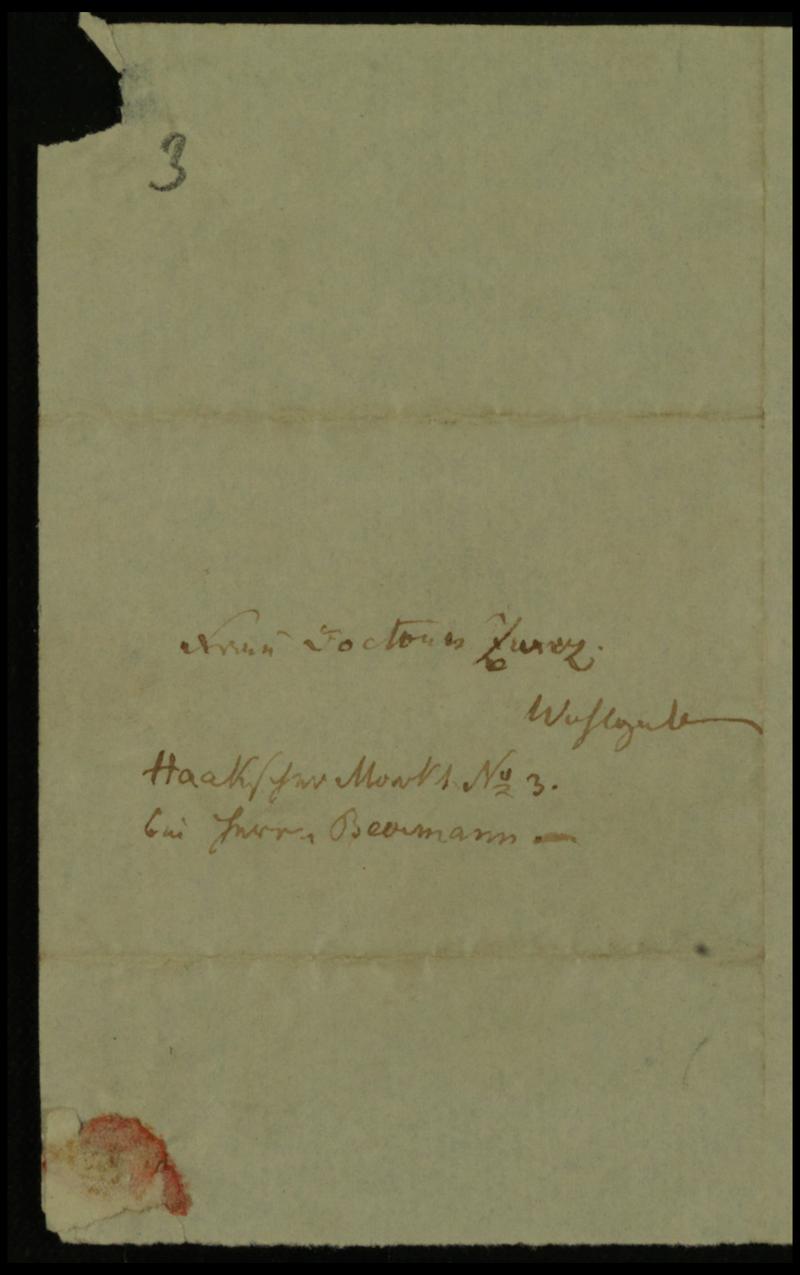 3
Herrn Zunz.
Wohlgeb
Haakscher Markt No 3.
bei Herrn Beermann —